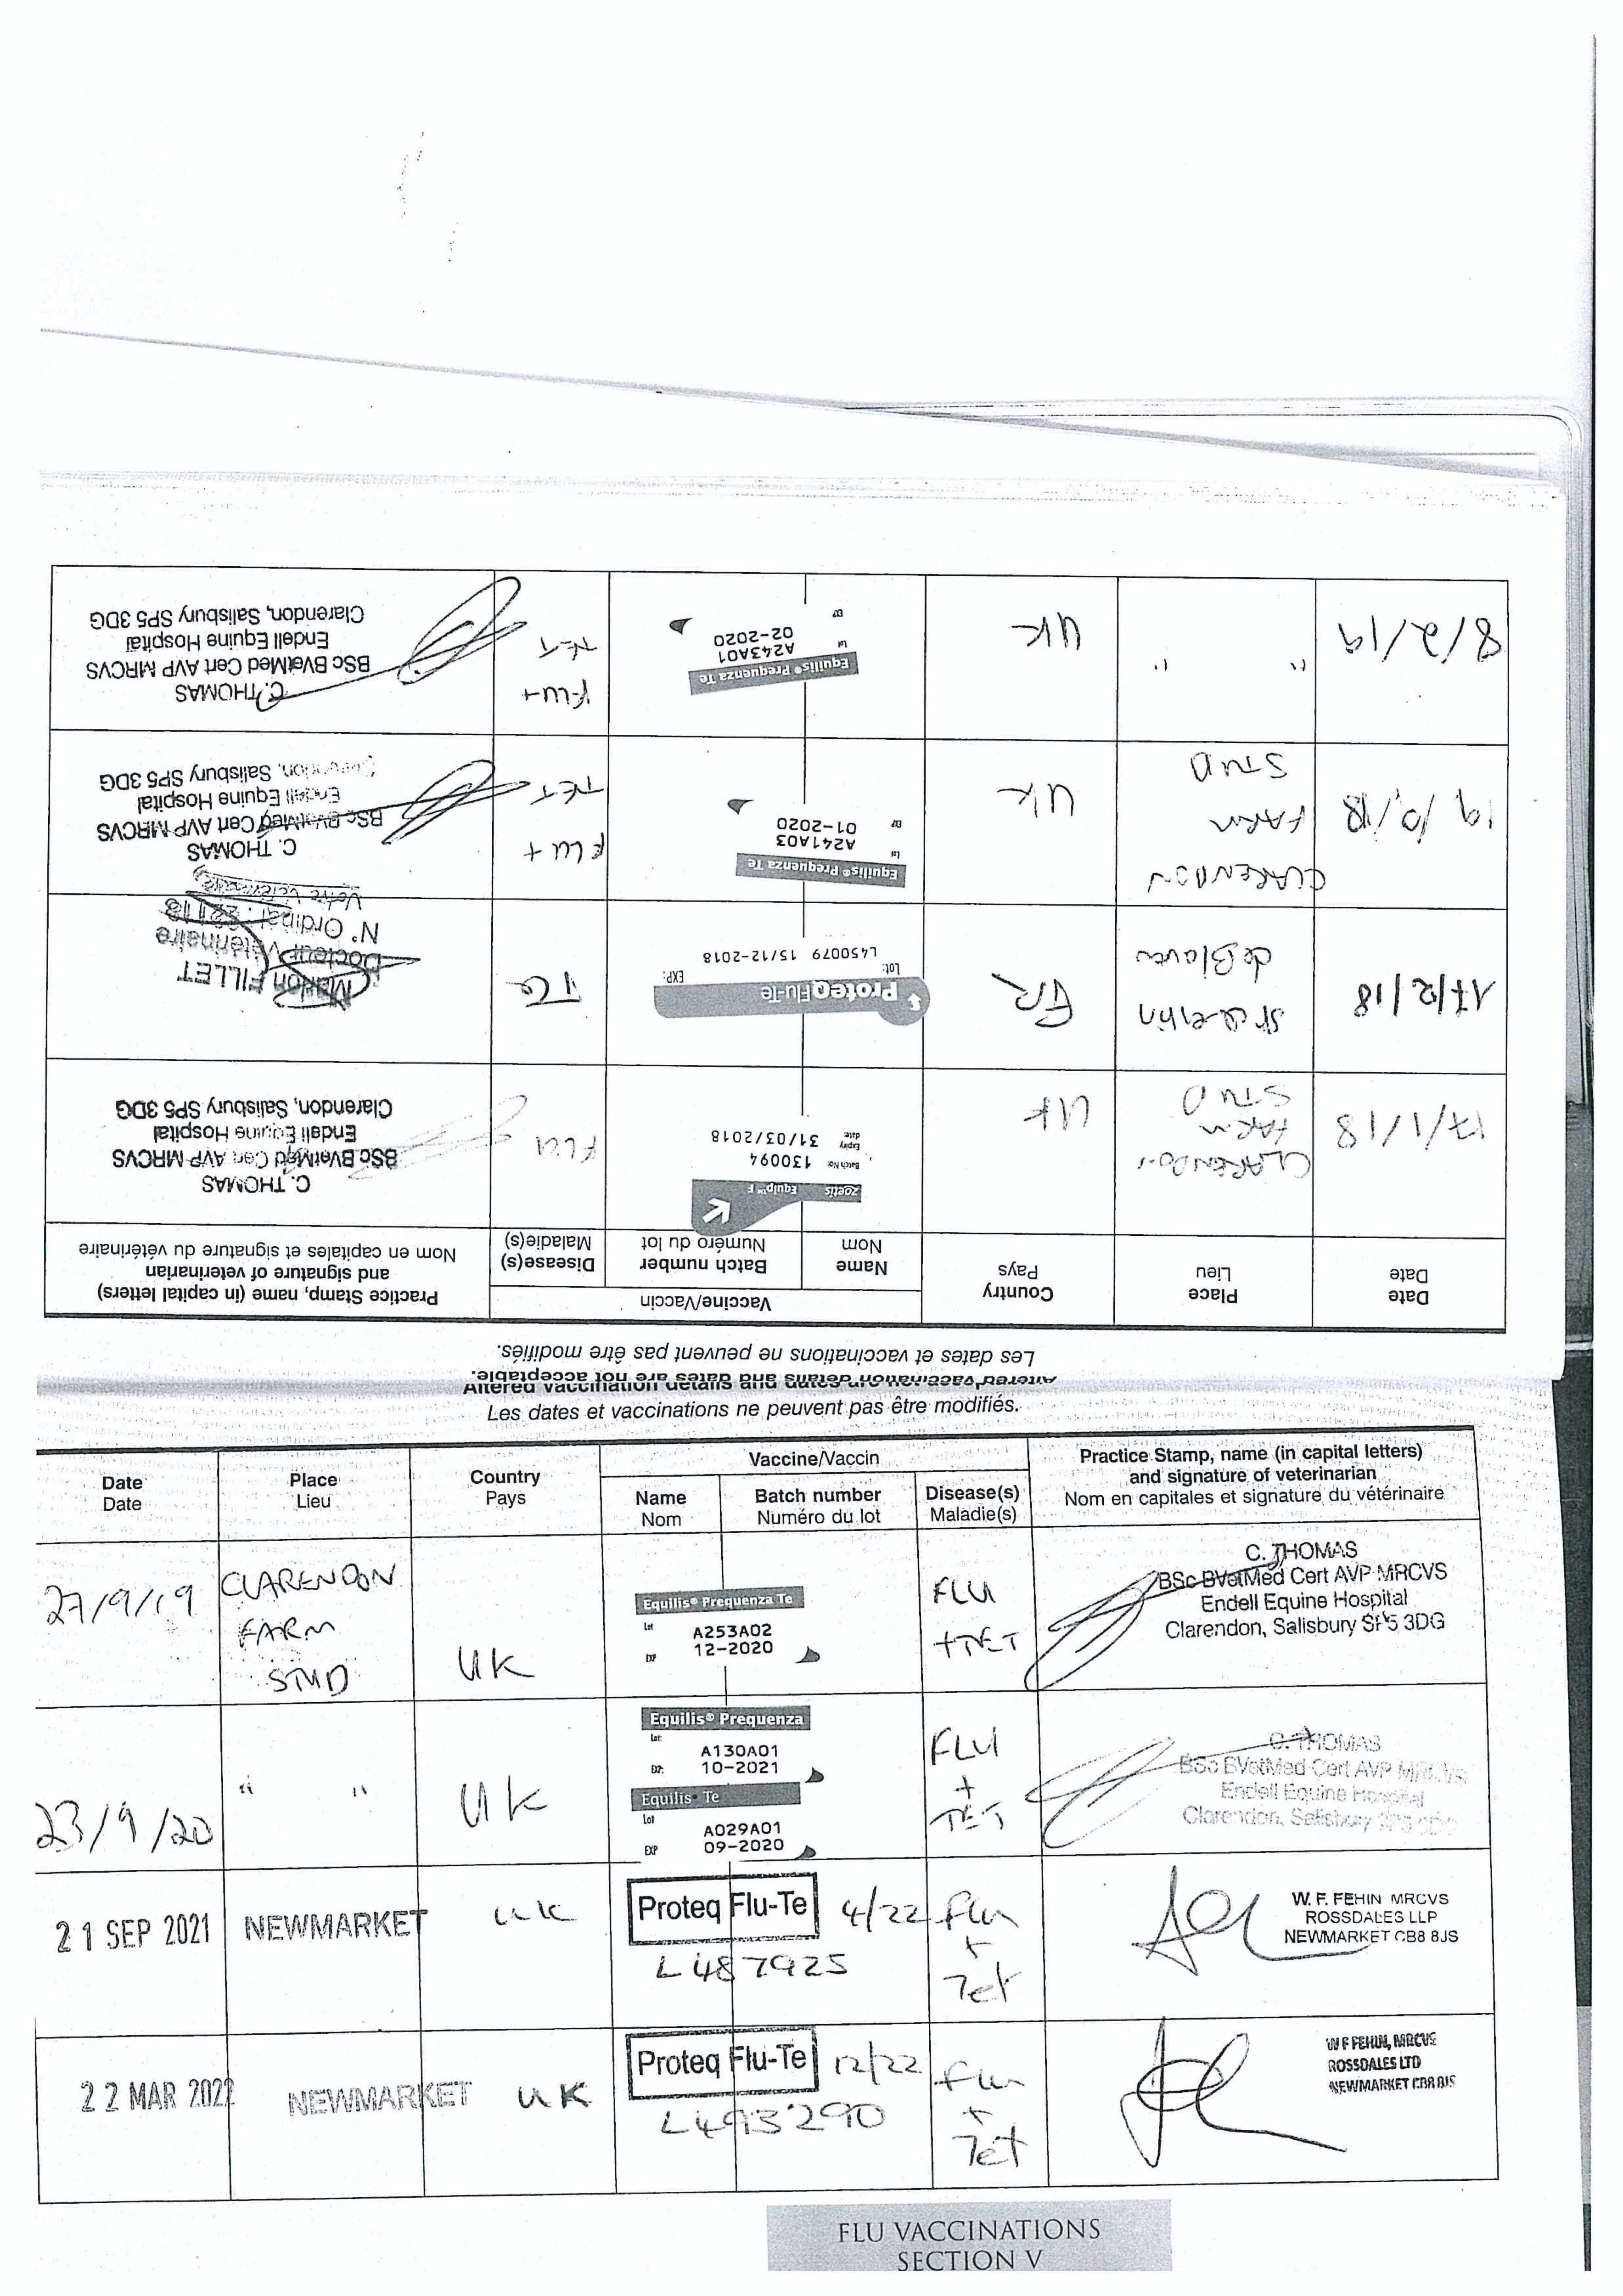 Les dates et vaccinations ne peuvent pas être modifiés.
Altered vaccination details and dates are not acceptable.
Date
Date
Place
Lieu
Country
Pays
Vaccine/Vaccin
Name
Nom
Batch number
Numéro du lot
Disease(s)
Maladie(s)
Practice Stamp, name (in capital letters)
and signature of veterinarian
Nom en capitales et signature du vétérinaire
17/1/18
CLARENDON
FARM
STUD
UK
zoetis Equip™ F
Batch No: 130094
Expiry date: 31/03/2018
FLU
C. THOMAS
BSc BVetMed Cert AVP MRCVS
Endell Equine Hospital
Clarendon, Salisbury SP5 3DG
17/2/18
de Blavou
FR
ProteqFlu-Te
Lot: EXP:
L450079 15/12-2018
TG
Marion FILLET
Docteur Vétérinaire
N° Ordinal: 22118
19/10/18
CLARENDON
FARM
STUD
UK
Equilis® Prequenza Te
Lot A241A03
EXP 01-2020
FLU +
TET
C. THOMAS
BSc BVetMed Cert AVP MRCVS
Endell Equine Hospital
Clarendon, Salisbury SP5 3DG
8/2/19
" "
UK
Equilis® Prequenza Te
Lot A243A01
EXP 02-2020
FLU+
TET
C. THOMAS
BSc BVetMed Cert AVP MRCVS
Endell Equine Hospital
Clarendon, Salisbury SP5 3DG
Altered vaccination details and dates
Les dates et vaccinations ne peuvent pas être modifiés.
Date
Date
Place
Lieu
Country
Pays
Vaccine/Vaccin
Name
Nom
Batch number
Numéro du lot
Disease(s)
Maladie(s)
Practice Stamp, name (in capital letters)
and signature of veterinarian
Nom en capitales et signature du vétérinaire
27/9/19
CLARENDON
FARM
STUD
UK
Equilis® Prequenza Te
Lot A253A02
EXP 12-2020
FLU
+TET
C. THOMAS
BSc BVetMed Cert AVP MRCVS
Endell Equine Hospital
Clarendon, Salisbury SP5 3DG
23/9/20
" "
UK
Equilis® Prequenza
Lot: A130A01
EXP: 10-2021
Equilis® Te
Lot A029A01
EXP 09-2020
FLU
+
TET
C. THOMAS
BSc BVetMed Cert AVP MRCVS
Endell Equine Hospital
Clarendon, Salisbury
21 SEP 2021
NEWMARKET
UK
Proteq Flu-Te 4/22
L487925
Flu
+
Tet
W. F. FEHIN MRCVS
ROSSDALES LLP
NEWMARKET CB8 8JS
22 MAR 2022
NEWMARKET
UK
Proteq Flu-Te 12/22
L493290
Flu
+
Tet
W F FEHIN, MRCVS
ROSSDALES LTD
NEWMARKET CB8 8JS
FLU VACCINATIONS
SECTION V